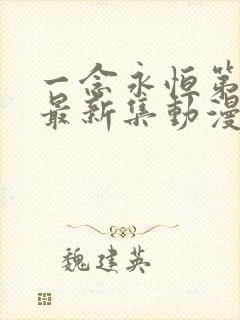 一念永恒第
最新集動漫
魏建英